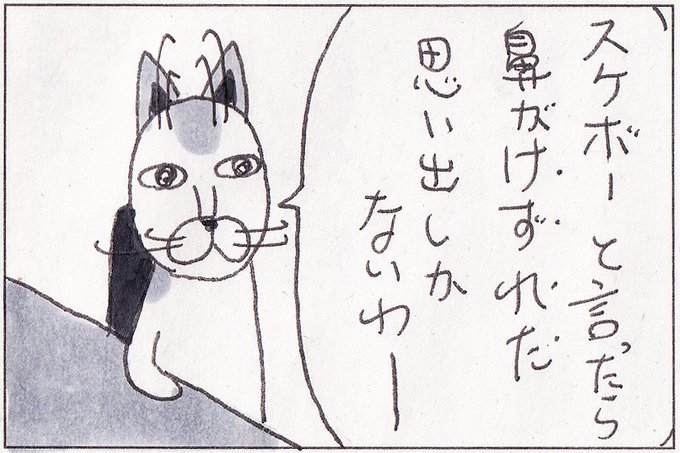 スケボーと言ったら
鼻がけずれた
思い出しか
ないわー